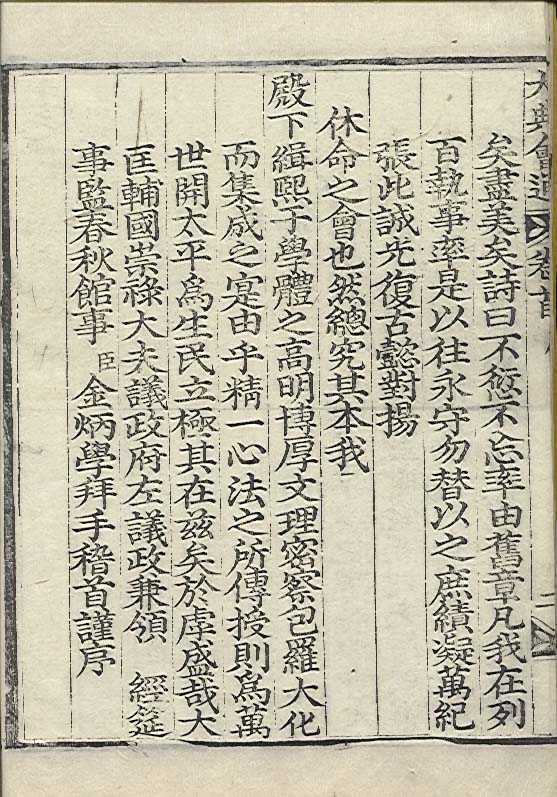 大典會通 卷首
矣盡美矣詩曰不愆不忘率由舊章凡我在列
百執事率是以往永守勿替以之庶績凝萬紀
張此誠光復古懿對揚
休命之會也然總究其本我
殿下緝熙于學體之高明博厚文理密察包羅大化
而集成之寔由乎精一心法之所傳授則爲萬
世開太平爲生民立極其在茲矣於虖盛哉大
匡輔國崇祿大夫議政府左議政兼領 經筵
事監春秋館事 臣 金炳學拜手稽首謹序